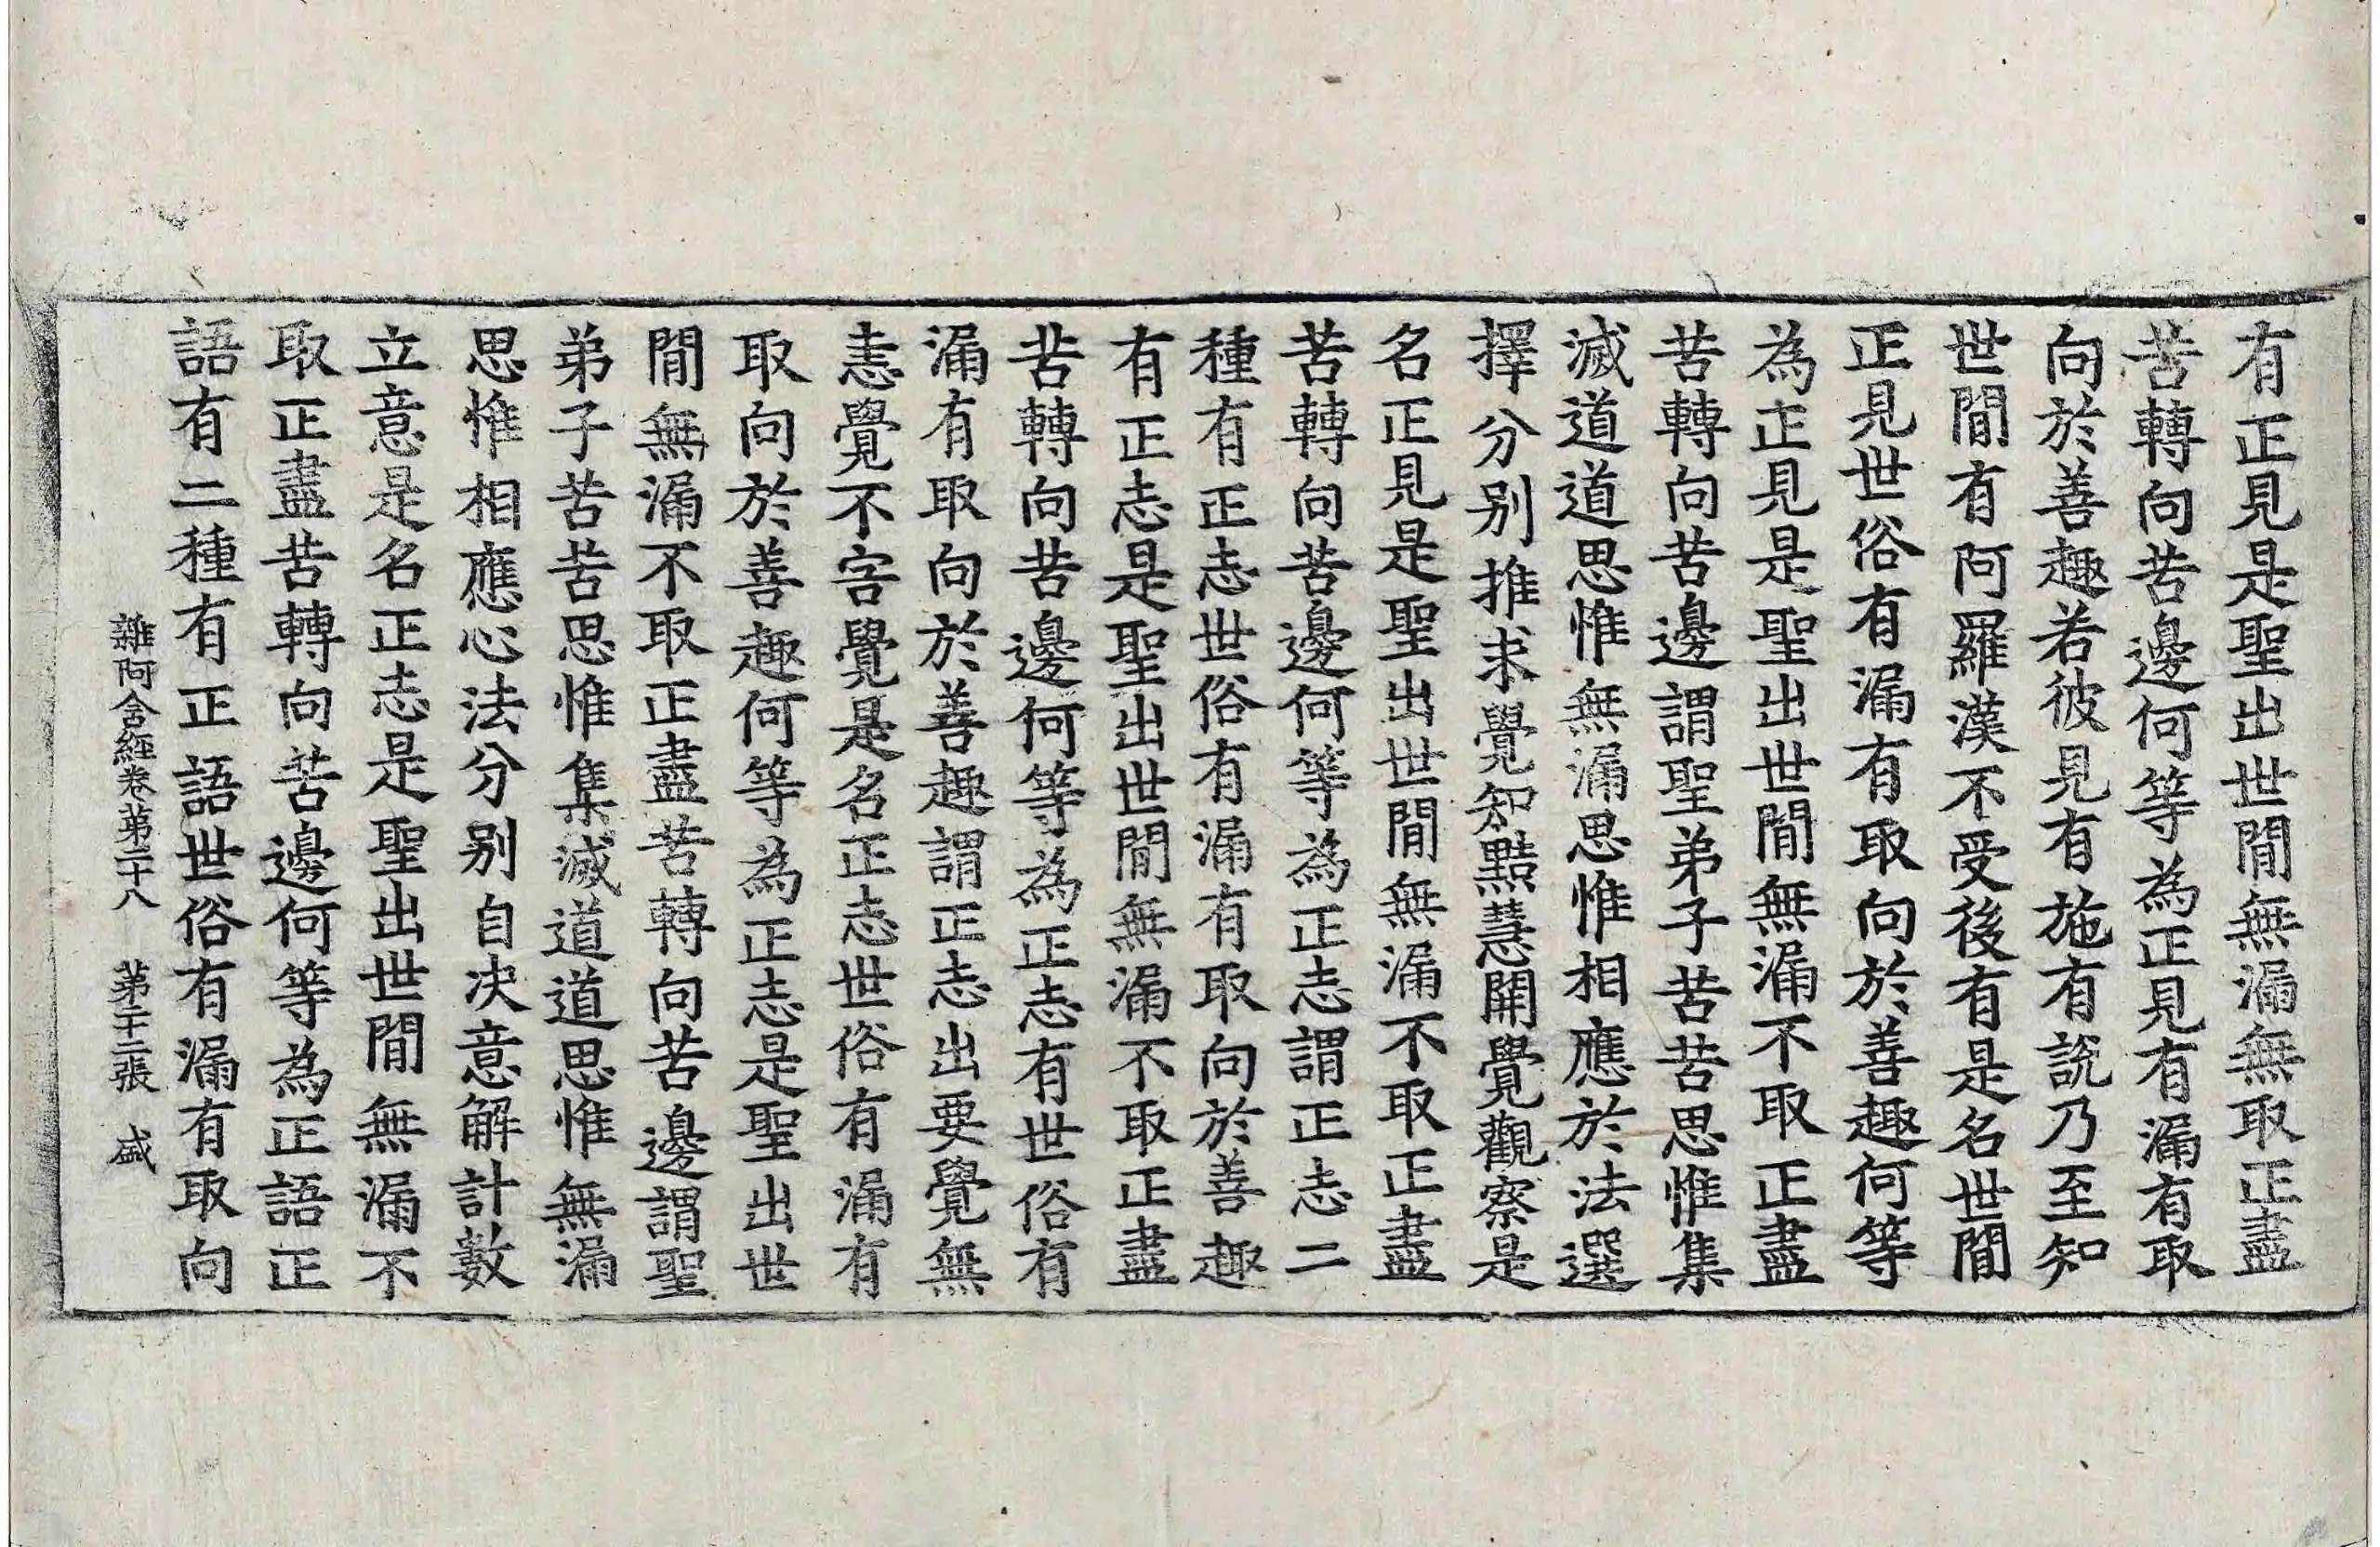 有正見是聖出世閒無漏無取正盡
苦轉向苦邊何等為正見有漏有取
向於善趣若彼見有施有說乃至知
世閒有阿羅漢不受後有是名世閒
正見世俗有漏有取向於善趣何等
為正見是聖出世閒無漏不取正盡
苦轉向苦邊謂聖弟子苦苦思惟集
滅道道思惟無漏思惟相應於法選
擇分別推求覺知黠慧開覺觀察是
名正見是聖出世閒無漏不取正盡
苦轉向苦邊何等為正志謂正志二
種有正志世俗有漏有取向於善趣
有正志是聖出世閒無漏不取正盡
苦轉向苦邊何等為正志有世俗有
漏有取向於善趣謂正志出要覺無
恚覺不害覺是名正志世俗有漏有
取向於善趣何等為正志是聖出世
閒無漏不取正盡苦轉向苦邊謂聖
弟子苦苦思惟集滅道道思惟無漏
思惟相應心法分別自決意解計數
立意是名正志是聖出世閒無漏不
取正盡苦轉向苦邊何等為正語正
語有二種有正語世俗有漏有取向
雜阿含經卷第二十八 第二十二張 盛